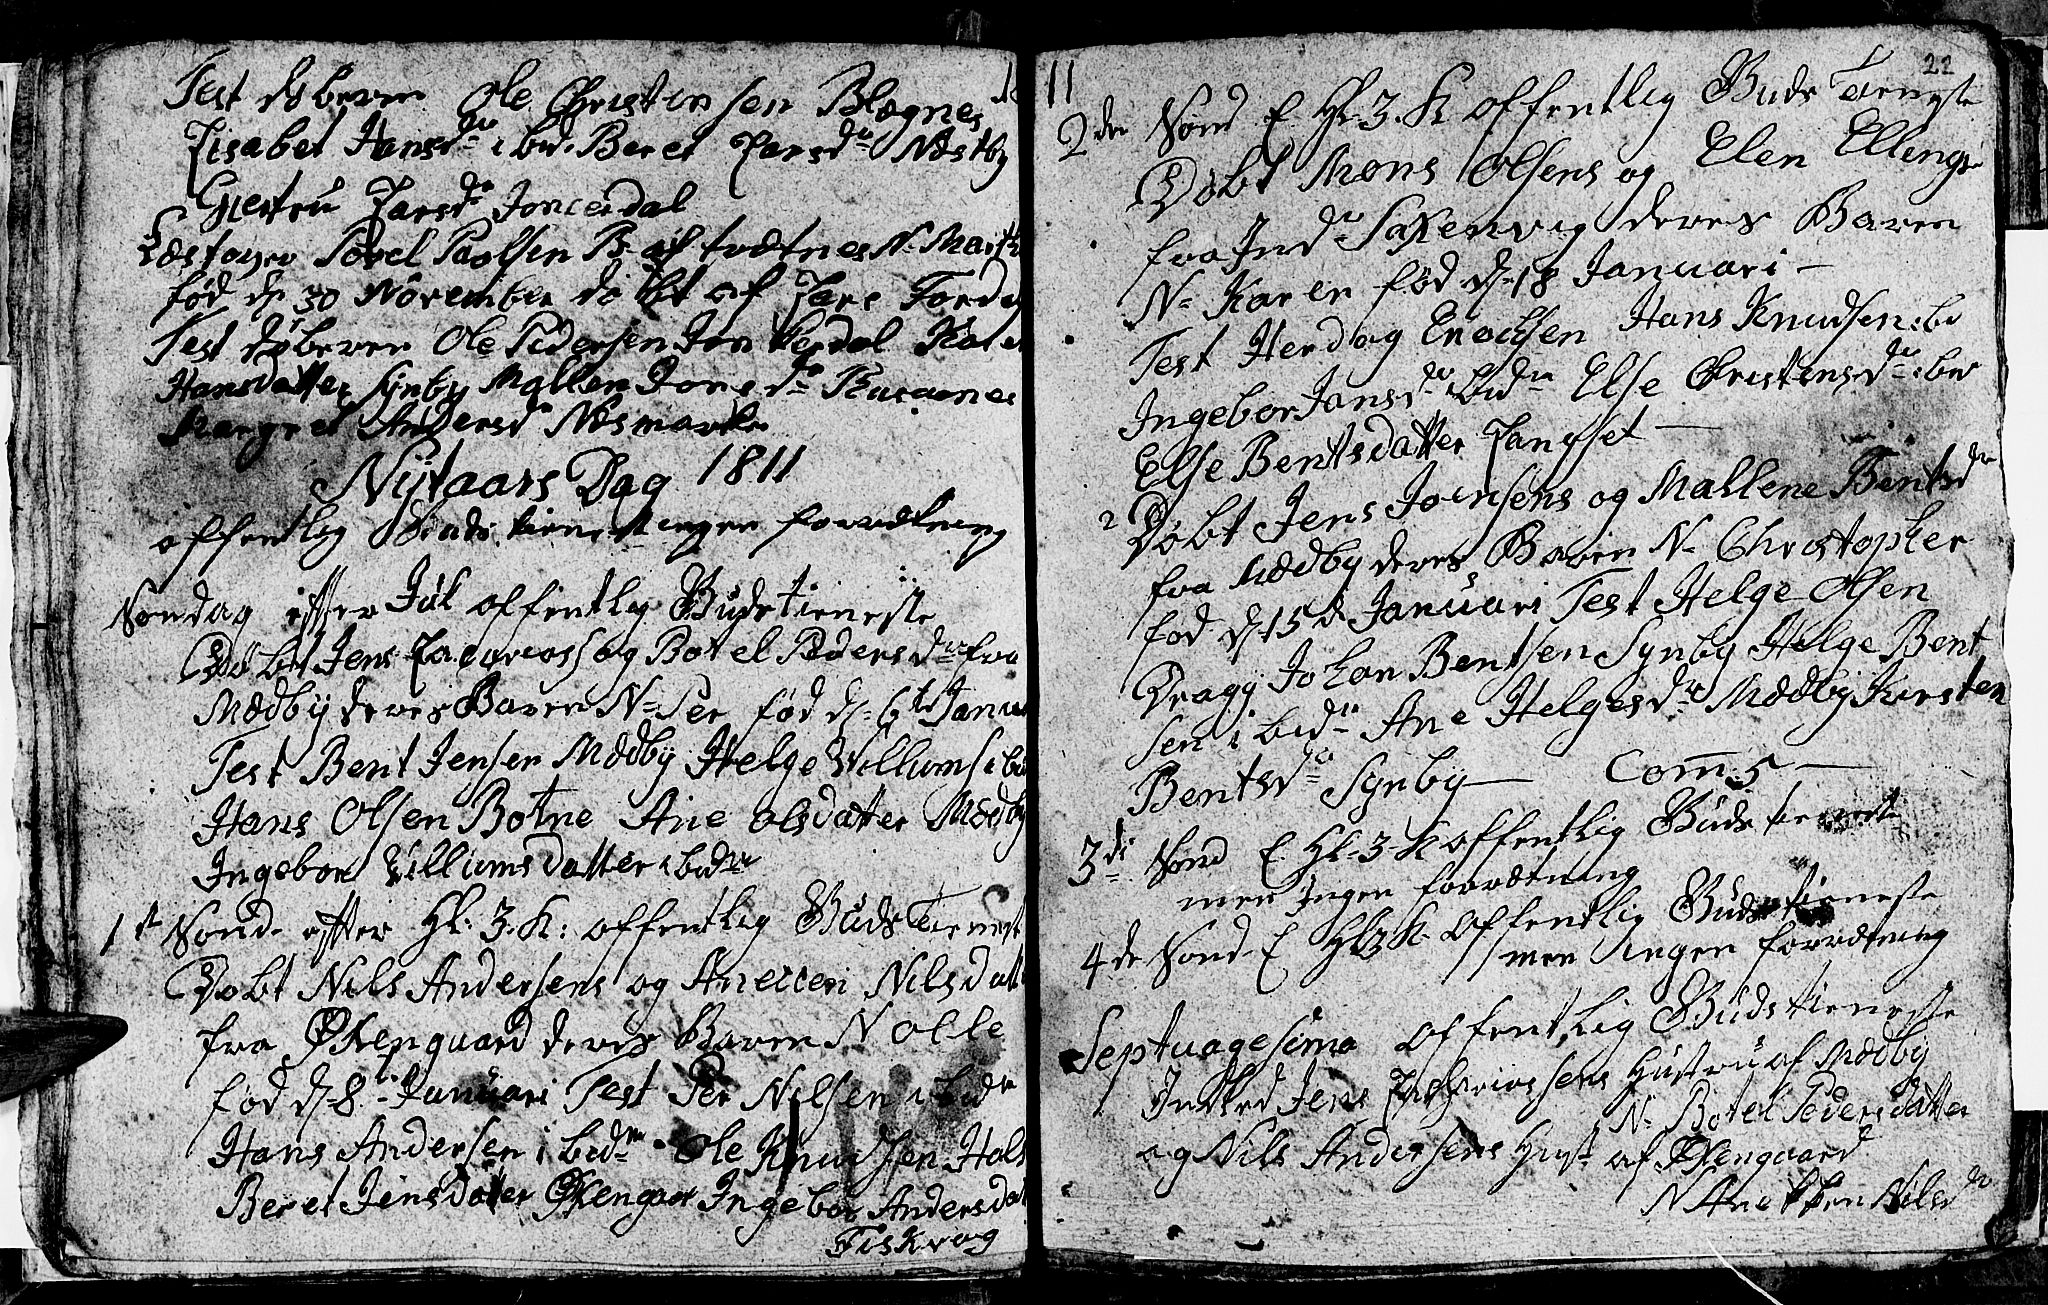 Test døberen Ole Christensen Blægnes
Lisabet Hansdr ibid. Beret Larsdr Næstby
Giertru Larsdr Jonkerdal
Povel Paulsen B. af tvætnes N. Marith
fød d. 30 November døbt af Lars Torde
Test døberen Ole Pedersen Jonkerdal
Hansdatter Synby Mallen Jonedr
Margret Andersd Næsmarke
Nytaars Dag 1811
offentlig Guds tieneste ingen forrætning
Søndag efter Jul offentlig Gudstieneste
Døbt Jens Zacariass og Botel Pedersdr fra
Mædby deres Baren N. Per fød d. 6te Janua
Test Bent Jensen Mædby Helge Villums ibid
Hans Olsen Botne Ane olsdatter Mædby
Ingebor Villiumsdatter ibidm
1st Sond. efter Hl. 3. K. offentlig Guds Tienest
Døbt Nils Andersens og Anecken Nilsdatt
fra Øxenguard deres Baren N Olle
fød d. 8. Januari Test Per Nilsen ibidm
Hans Andersen i bidm Ole Knudsen Hals
Beret Jensdatter Øxengaar Ingebor Andersdat
Fiskvog
11
22
2den Sond E. Hl. 3. K offentlig Guds Tieneste
Døbt Mons Olsens og Elen Ellings
fra Indr Saxenvig deres Baren
N. Karen fød d. 18 Januari
Test Herdog Enochsen Hans Knudsen ibi
Ingebor Jansdr ibidm Else Christensdr ibid
Else Bentsdatter Langset
2 Døbt Jens Joensens og Mallene Bentsdr
fra Mædby deres Baren N. Christopher
fød d. 15d Januari Test Helge Olsen
Dragy Johan Bentsen Synby Helge Bent
sen i bidm Ane Helgesdr Mædby Kirsten
Bentsdr Synby Com. 5
3di Sond E. Hl. 3. K offentlig Guds tienest
men Ingen forrætning
4de Sond E Hl 3 K. offentlig Gudstieneste
men ingen forrætning
Septuagesima offentlig Gudstieneste
Indled Jens Zachariassens Hustru af Mædby
N. Botel Pedersdatter
og Nils Andersens Hust af Øxenguard
N Anekken Nilsdr